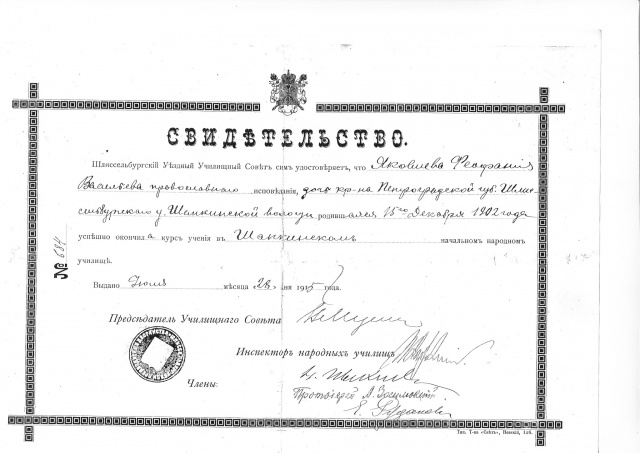 СВИДѢТЕЛЬСТВО.
Шлиссельбургскій Уѣздный Училищный Совѣтъ симъ удостовѣряетъ, что Яковлева Феофанія
Васильева православнаго исповѣданія, дочь кр-на Петроградской губ. Шлис-
сельбургскаго у. Шапкинской волости родившаяся 15го Декабря 1902 года
успѣшно окончила курсъ ученія въ Шапкинскомъ начальномъ народномъ
училищѣ.
№ 684
Выдано Іюля мѣсяца «28» дня 1915 года.
Предсѣдатель Училищнаго Совѣта
Инспекторъ народныхъ училищъ
Члены:
Протоіерей
Тип. Т-ва «Свѣтъ», Невскій, 136.